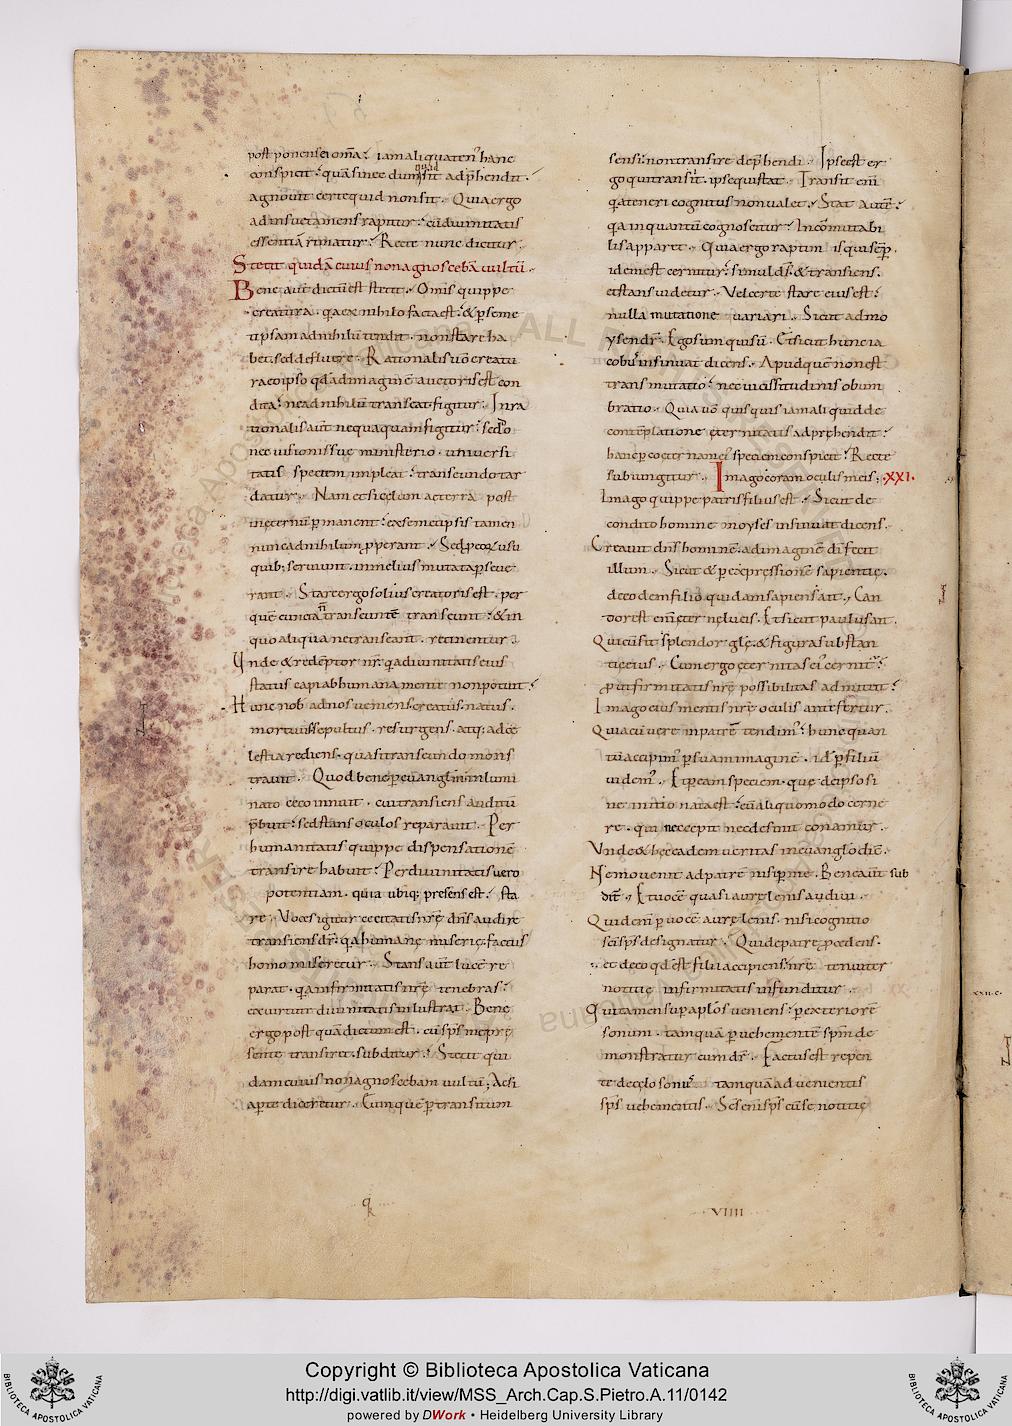 post ponens ei om̄a; iam aliquaten' hanc
conspicit; quā sinec dum quid sit adp̄hendit.
agnovit certe quid non sit. Quia ergo
adinsueta mens rapitur; cū divinitatis
essentiā rimatur; Recte nunc dicitur;
Stetit quidā cuius non agnoscebā vultū.
Bene aut̄ dictū est stetit. Om̄is quippe
creatura. q̄a ex nihilo facta est; & p̄ seme
tipsam ad nihilū tendit. non stare ha
bet. sed defluere. Rationalis v̄o creatu
ra eo ipso qđ ad imaginē auctoris est con
dita; ne ad nihilū transeat. figitur; Inra
tionalis aūt nequaquam figitur; sed
nec visionis sue ministerio. universi
tatis speciem impleat; transeundo tar
datur. Nam etsi cęlum ac terra post
in ęternū p̄manent; ex semetipsis tamen
nunc ad nihilum p̄perant. Sed p̄ eoꝝ usu
quib; serviunt. in melius mutata p̄seve
rant. Stare ergo solius creatoris est. per
quē cuncta transeunt nō transeunt; & in
quo aliqua ne transeant. retinentur.
Unde & redēptor nr̄. q̄a divinitatis eius
status capi ab humana mente non potuit;
Hunc nob̄ ad nos veniens. creatus. natus.
mortuus. sepultus. resurgens. atq; ad cę
lestia rediens. quasi transeundo mons
travit. Quod bene p̄ evangliū in lumi
nato ceco innuit. cui transiens auditū
p̄buit; sed stans oculos reparavit. Per
humanitatis quippe dispensationē
transire habuit; Per divinitatis vero
potentiam. quia ubiq; presens est. sta
re. Voces igitur cecitatis nr̄ę dn̄s audire
transiens dr̄. q̄a humanę miserię. factus
homo miseretur. Stans aūt lucē re
parat. q̄a infirmitatis nr̄ę tenebras;
ex virtute divinitatis inlustrat. Bene
ergo postquā dictum est. cū sp̄s me prę
sente transiret. subditur; Stetit qui
dam cuius non agnoscebam vultū; Ac si
ap̄te diceretur. Cum quē p̄transitum
sensi; non transire dep̄hendi. Ipse est er
go qui transit. ipse qui stat. Transit eni
q̄a teneri cognitus non valet. Stat aūt;
q̄a in quantū cognoscitur; Incōmutabi
lis apparet. Quia ergo raptim is qui sēp̄
idem est cernitur; simul dš. & transiens.
et stans videtur. Vel certe stare eius est;
nulla mutatione variari. Sicut ad mo
ysen dr̄. Ego sum qui sū. Et sicut hunc ia
cob' insinuat dicens. Apud quē non est
transmutatio; nec vicissitudinis obum
bratio. Quia v̄o quisquis iam aliquid de
contēplatione ęternitatis adpręhendit;
hanc p̄ coęternam ei' speciem conspicit; Recte
subiungitur. Imago coram oculis meis; .XXI.
Imago quippe patris filius est. Sicut de
condito homine moyses insinuat dicens.
Creavit dn̄s hominē. ad imaginē di' fecit
illum. Sicut & p̄ expressionē sapientię.
de eodem filio. quidam sapiens ait. Can
dor est eni ęternę lucis. Et sicut paulus ait.
Qui cū sit splendor glę. & figura substan
tię eius. Cum ergo ęternitas ei' cernit';
p̄ ut infirmitatis nr̄ę possibilitas admittit;
Imago eius mentis nr̄ę oculis antefertur.
Quia cū vere in patrē tendim'; hunc quan
tū accipim' p̄ suam imaginē. idē p̄ filiū
videm'. Et p̄ eam speciem. quę de ipso si
ne initio nata est; eū aliquomodo cerne
re. qui nec cepit nec desinit conamur.
Unde & hęc eadem veritas in evanglio dic̄.
Nemo venit ad patrē nisi p̄ me. Bene aūt sub
ditr̄. Et vocē quasi aurę lenis audivi.
Quid eni p̄ vocē aurę lenis. nisi cognitio
sc̄i sp̄s designatur. Qui de patre p̄cedens.
et de eo qđ est filii accipiens. nr̄ę tenuiter
notitię infirmitatis infunditur.
Qui tamen sup̄ aplos veniens; p̄ exteriorē
sonum. tamquā p̄ vehementē spm̄ de
monstratur cum dr̄. Factus est repen
te de cęlo sonus' tamquā advenientis
sp̄s vehementis. Sc̄s eni sp̄s cū se notitię
xxii. c.
VIIII